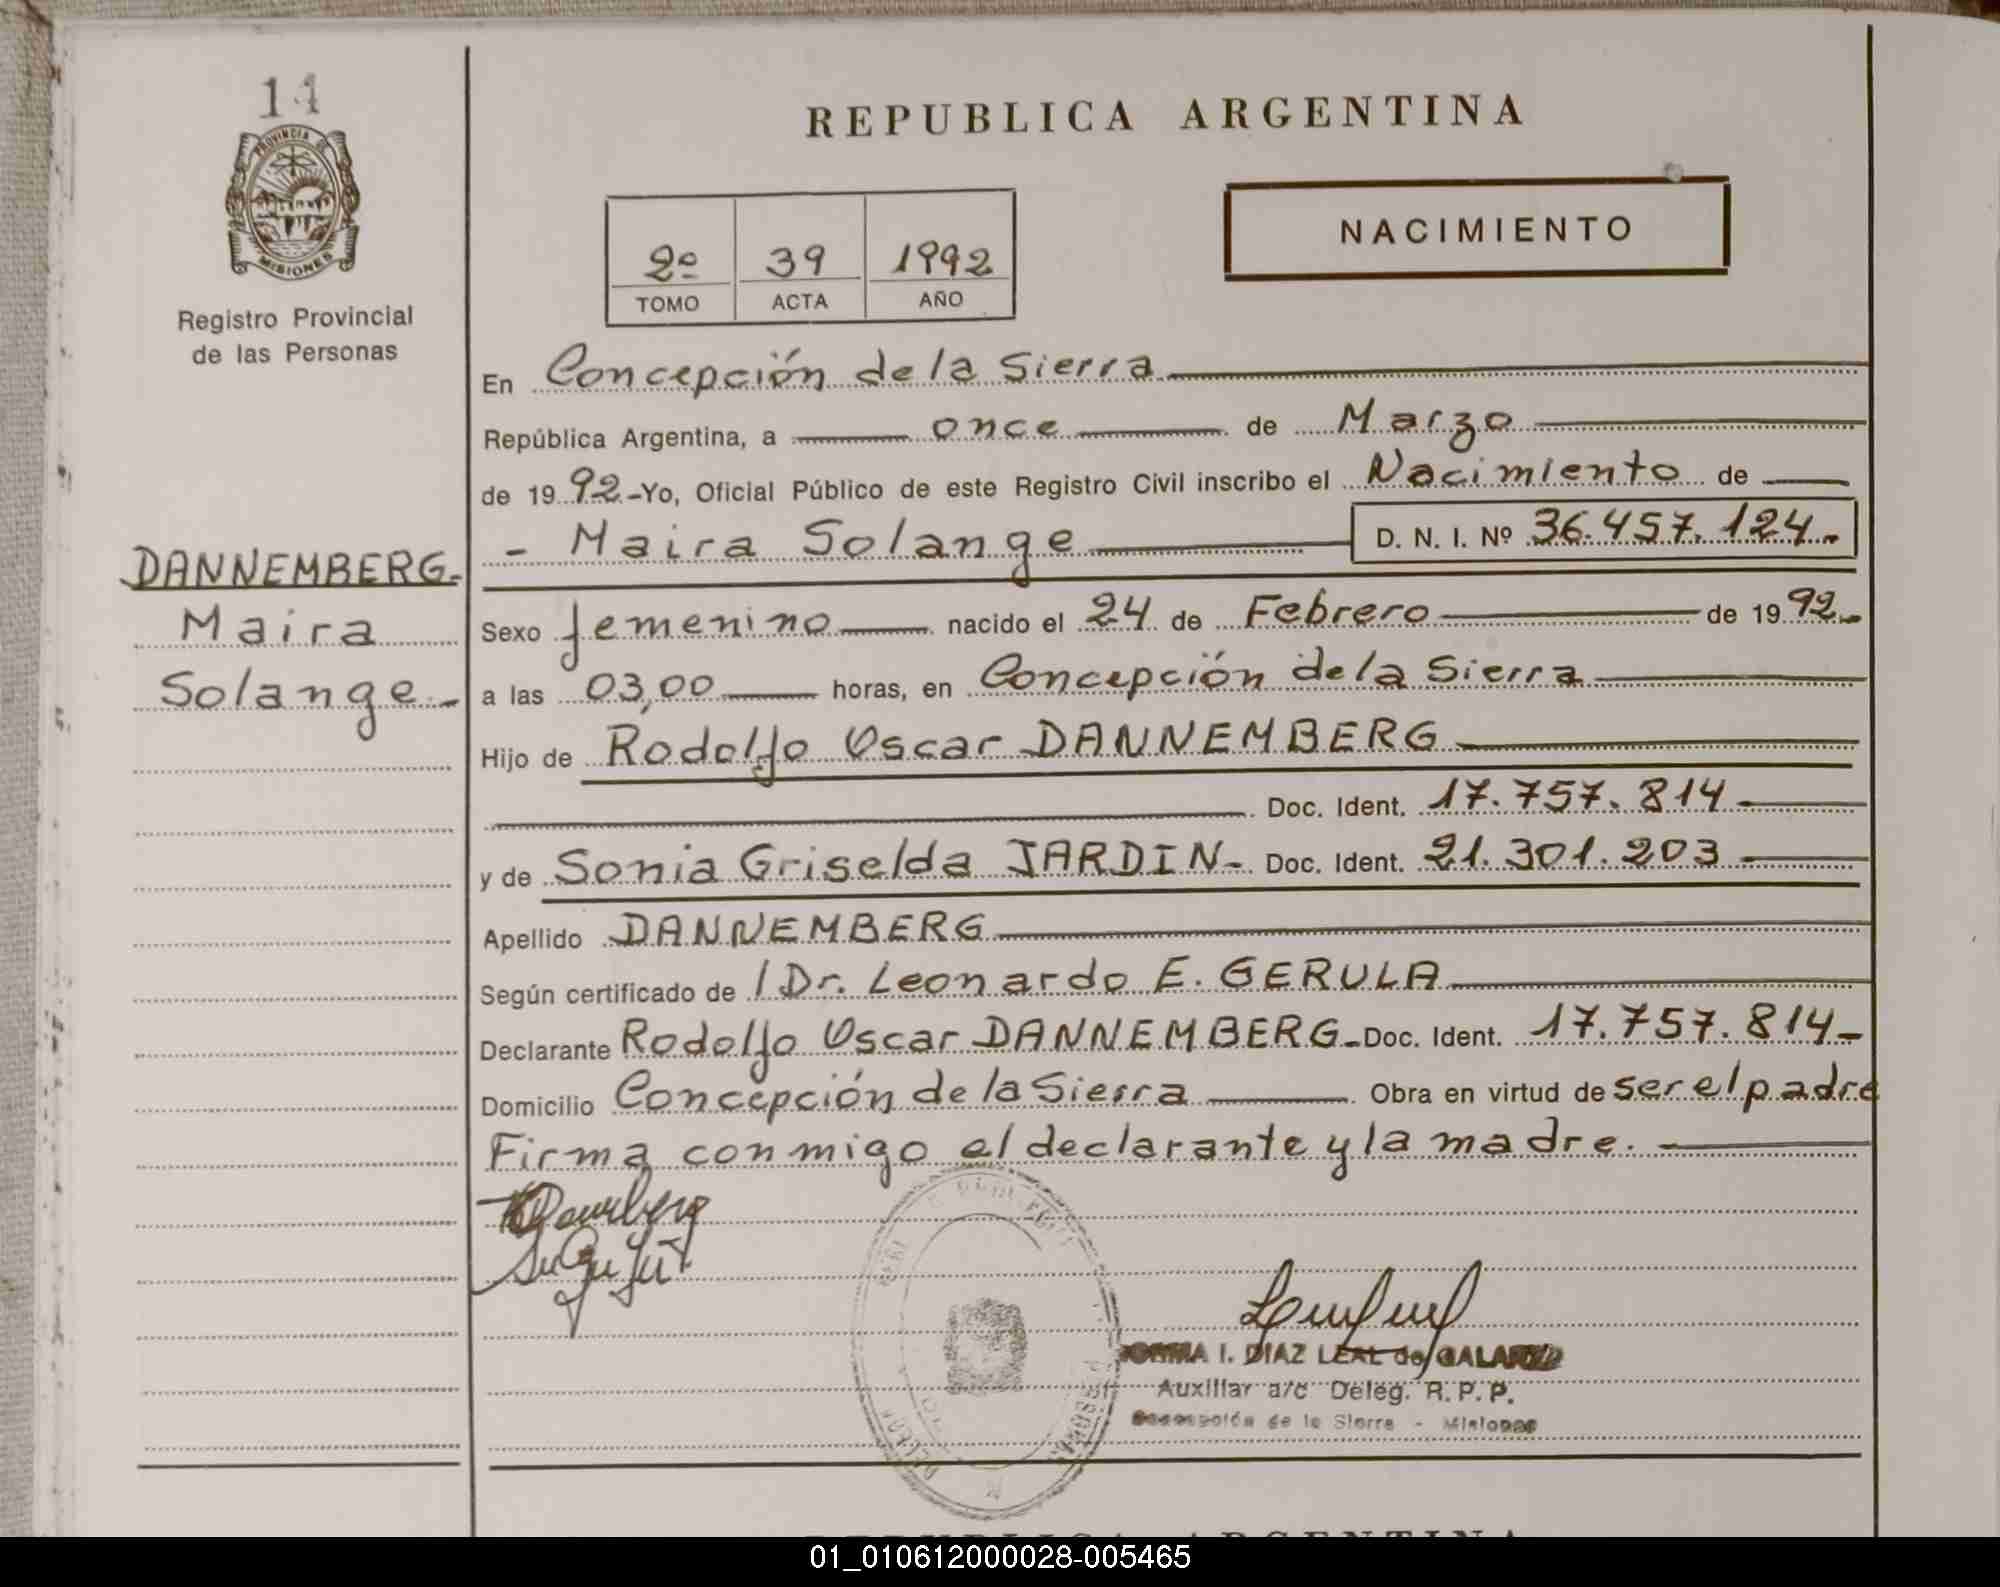 14
PROVINCIA DE
MISIONES
Registro Provincial
de las Personas
DANNEMBERG-
Maira
Solange-
REPUBLICA ARGENTINA
2º 39 1992
TOMO ACTA AÑO
NACIMIENTO
En Concepción de la Sierra
República Argentina, a once de Marzo
de 1992-Yo, Oficial Público de este Registro Civil inscribo el Nacimiento de
- Maira Solange D. N. I. Nº 36.457.124.-
Sexo femenino nacido el 24 de Febrero de 1992-
a las 03,00 horas, en Concepción de la Sierra
Hijo de Rodolfo Oscar DANNEMBERG
Doc. Ident. 17.757.814
y de Sonia Griselda JARDIN- Doc. Ident. 21.301.203
Apellido DANNEMBERG
Según certificado de / Dr. Leonardo E. GERULA
Declarante Rodolfo Oscar DANNEMBERG-Doc. Ident. 17.757.814-
Domicilio Concepción de la Sierra Obra en virtud de ser el padre
Firma conmigo el declarante y la madre.
I. DIAZ LEAL de
Auxiliar a/c Deleg. R. P. P.
de la Sierra - Misiones
REPUBLICA ARGENTINA
01_010612000028-005465